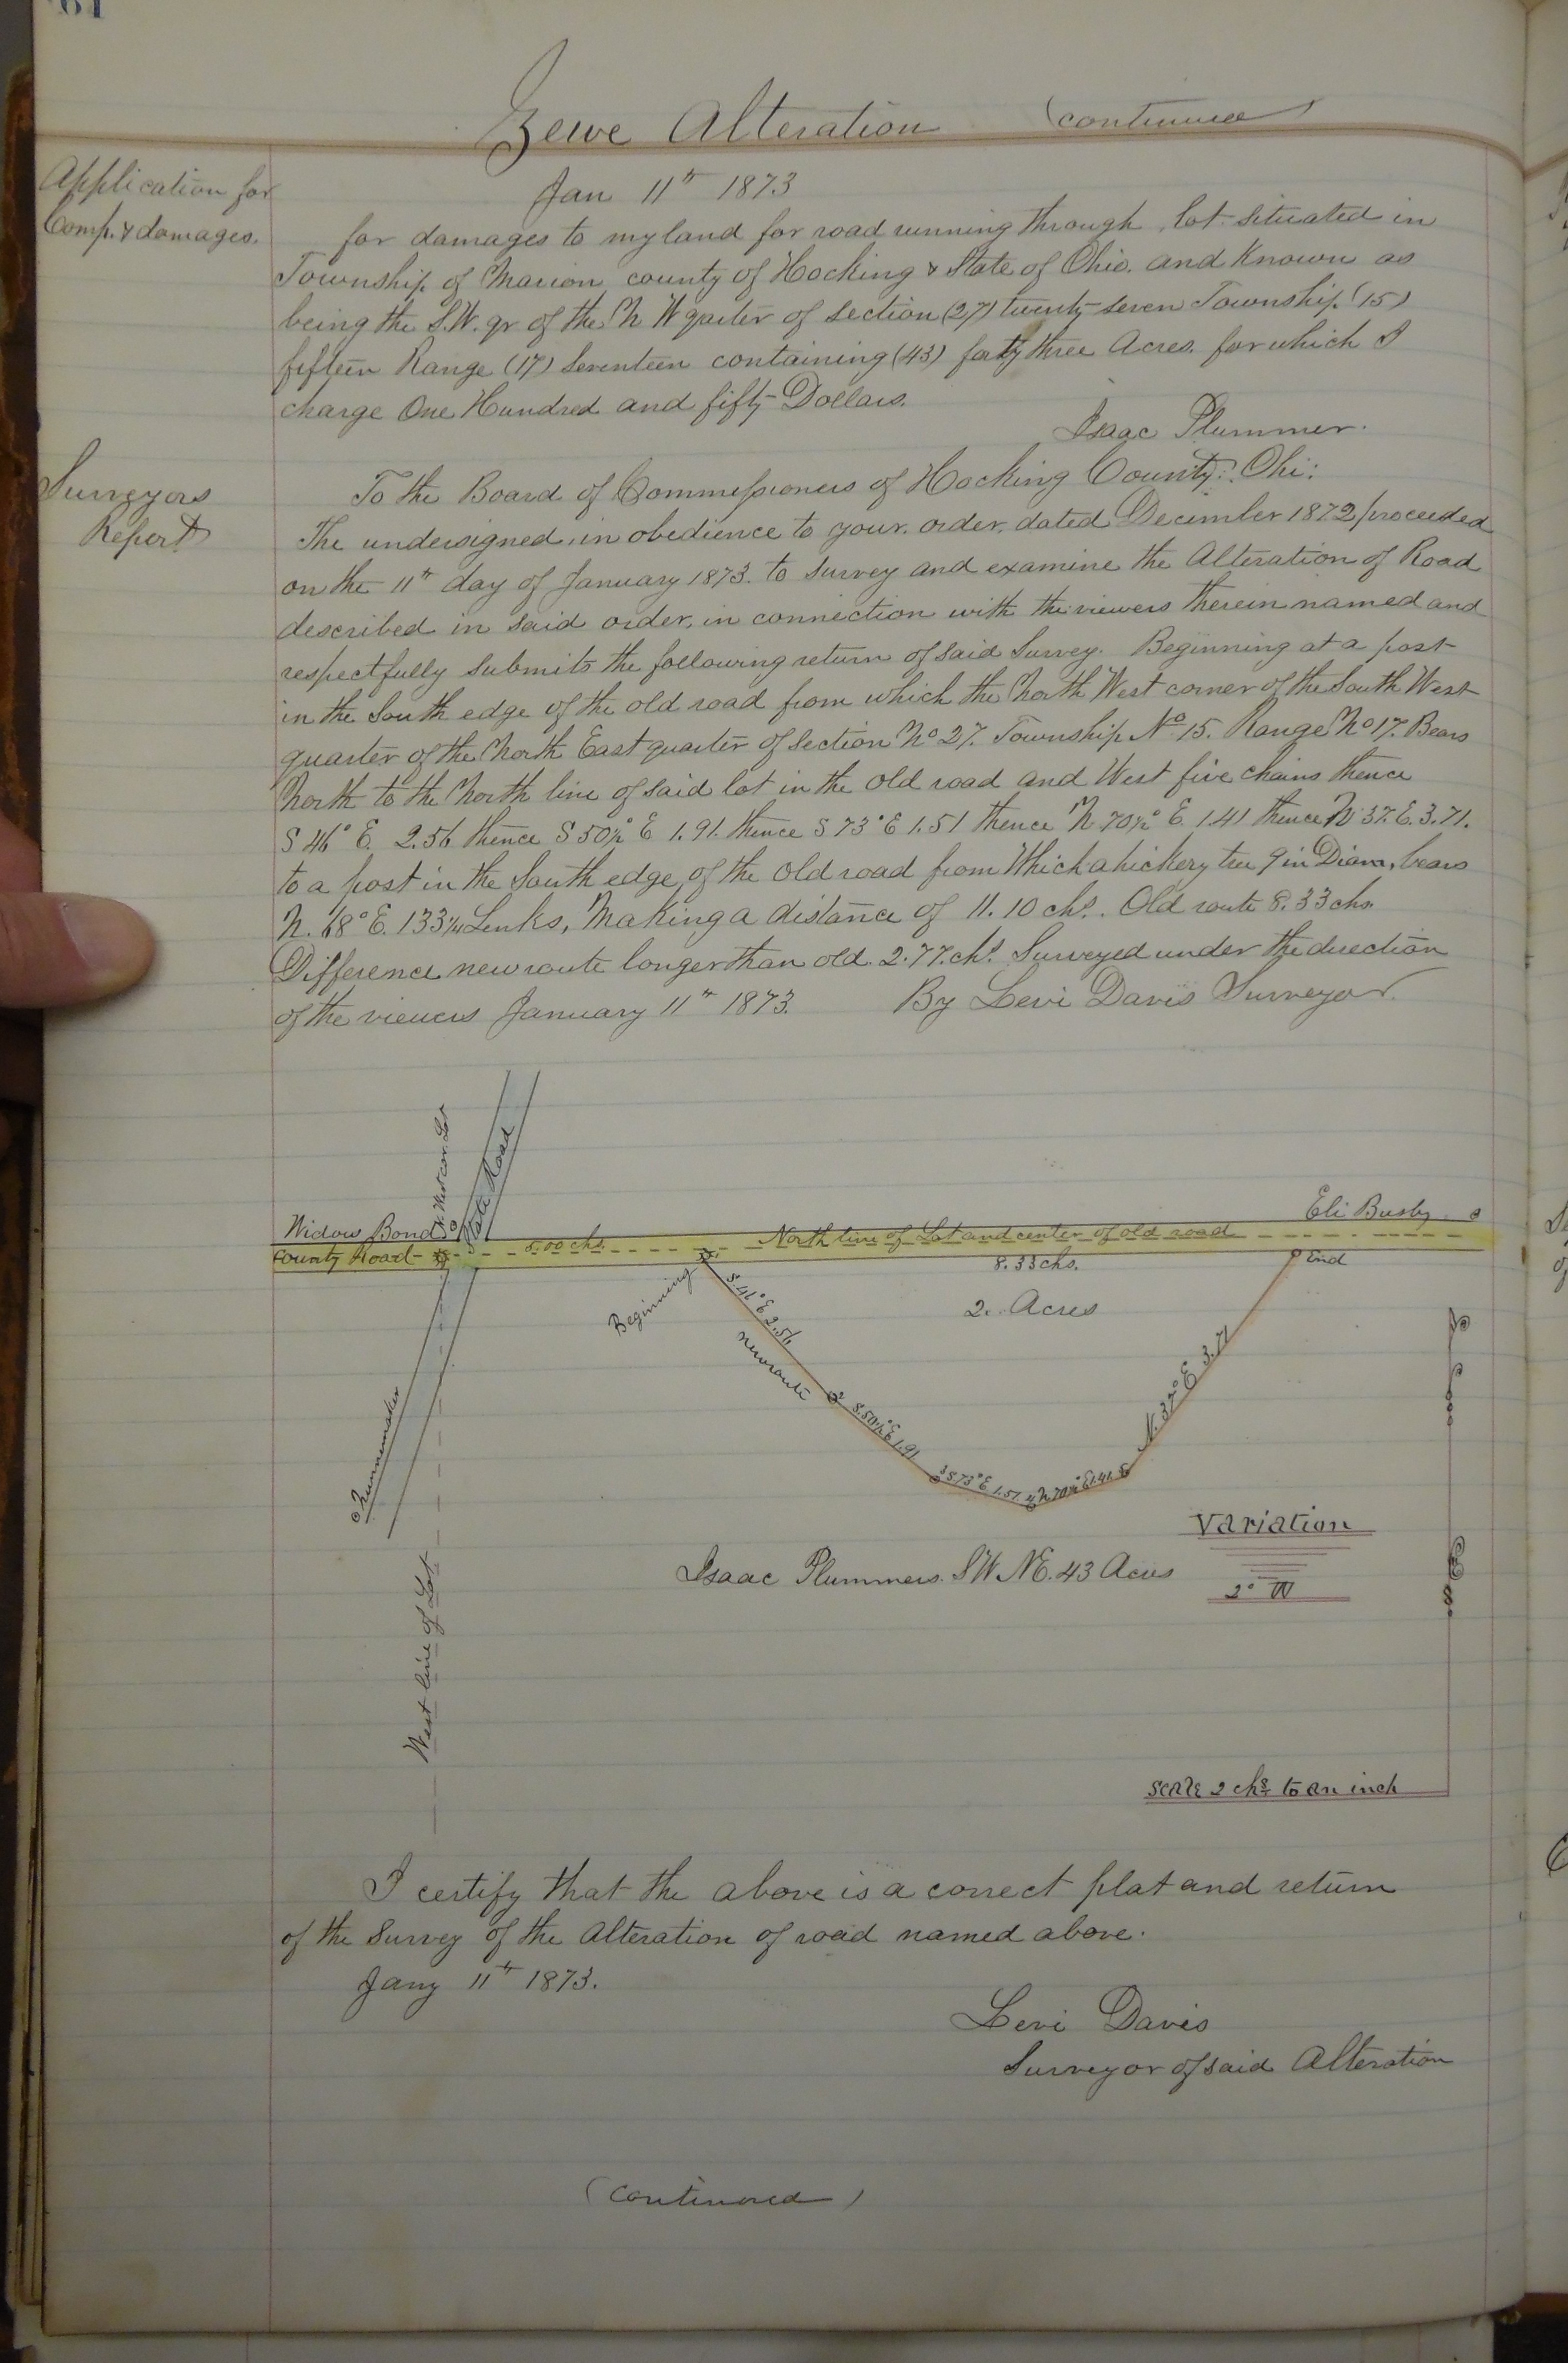 61
Zewe Alteration (continued)
Application for
Comp. & damages.
Jan 11th 1873
for damages to my land for road running through lot situated in
Township of Marion county of Hocking & State of Ohio. and Known as
being the S.W. qr of the N W quater of section (27) twenty-seven Township (15)
fifteen Range (17) Seventeen containing (43) forty three Acres. for which I
charge One Hundred and fifty Dollars.
Isaac Plummer.
Surveyors
Report
To the Board of Commissioners of Hocking County: Ohi:
The undersigned, in obedience to your order, dated December 1872, proceeded
on the 11th day of January 1873. to survey and examine the Alteration of Road
described in said order, in connection with the viewers therein named and
respectfully submits the following return of said Survey. Beginning at a post
in the South edge of the old road from which the North West corner of the South West
quarter of the North East quarter of section No 27. Township No. 15. Range No 17. Bears
North to the North line of said lot in the old road and West five chains thence
S 46° E. 2.56 thence S 50½° E 1.91. thence S 73° E 1.51 thence N 70½° E. 1.41 thence N 37. E. 3.71.
to a post in the South edge, of the old road from Which a hickery tree 9 in Diam, bears
N. 68° E. 133¼ Lenks, Making a distance of 11.10 chs. Old route 8.33 chs.
Difference new route longer than old. 2.77. chs. Surveyed under the direction
of the viewers January 11th 1873. By Levi Davis Surveyor.
N. West cor. Lot
State Road
Widow Bonds
Eli Busby
County Road
5.00 chs.
North line of Lot and center of old road
8.33 chs.
End
Beginning
2. Acres
S. 46° E 2.56
new route
S. 50½° E 1.91
S 73° E 1.51
N. 70½° E 1.41
N. 37° E 3.71
Variation
2° W
Isaac Plummers. SW. NE. 43 Acres
West line of Lot
scale 2 chs to an inch
I certify that the above is a correct plat and return
of the Survey of the Alteration of road named above.
Jany 11th 1873.
Levi Davis
Surveyor of said Alteration
(continued)